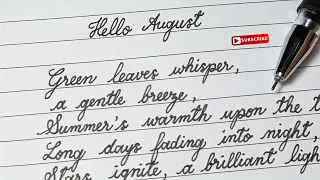 Hello August
SUBSCRIBE
Green leaves whisper,
a gentle breeze,
Summer's warmth upon the t
Long days fading into night,
Stars ignite, a brilliant ligh